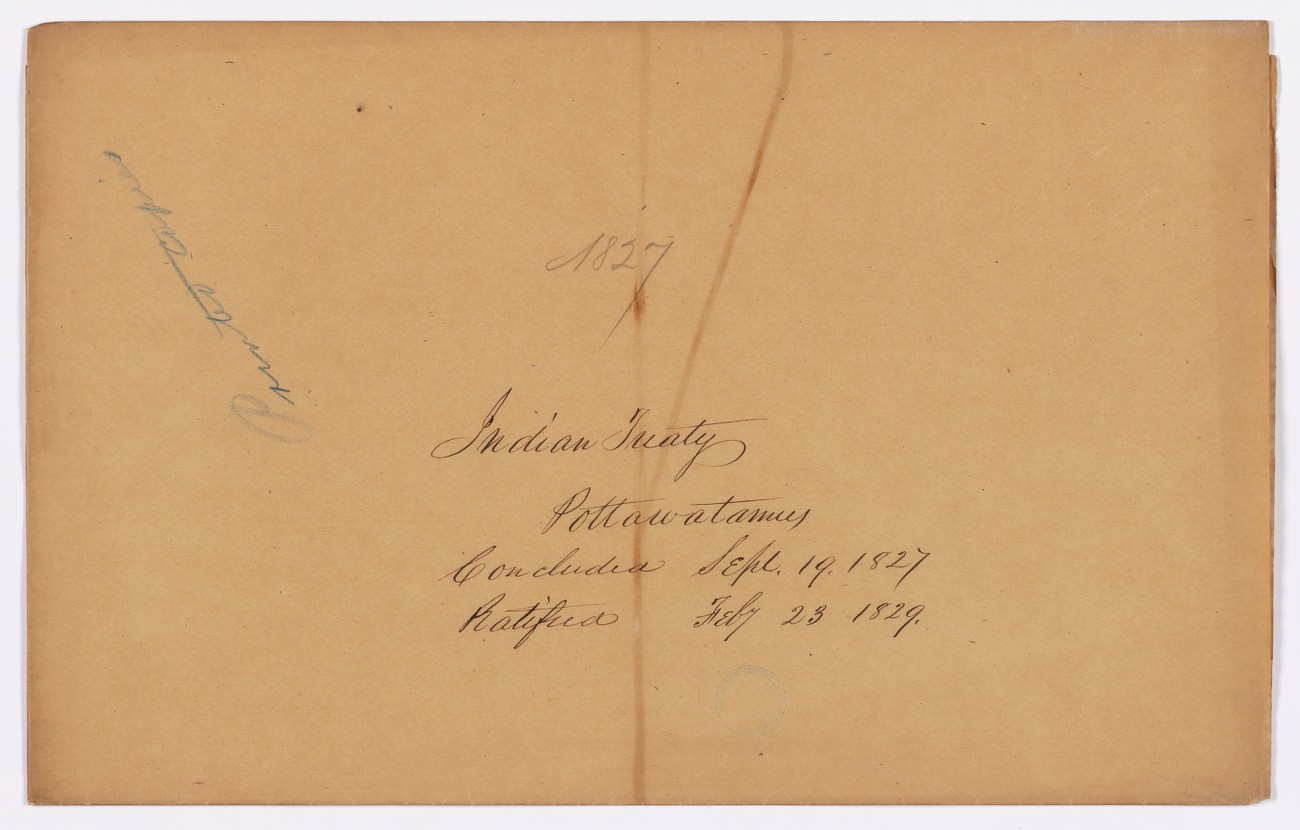 Printed Copies
1827
Indian Treaty
Pottawatamies
Concluded Sept. 19. 1827
Ratified Feby 23 1829.